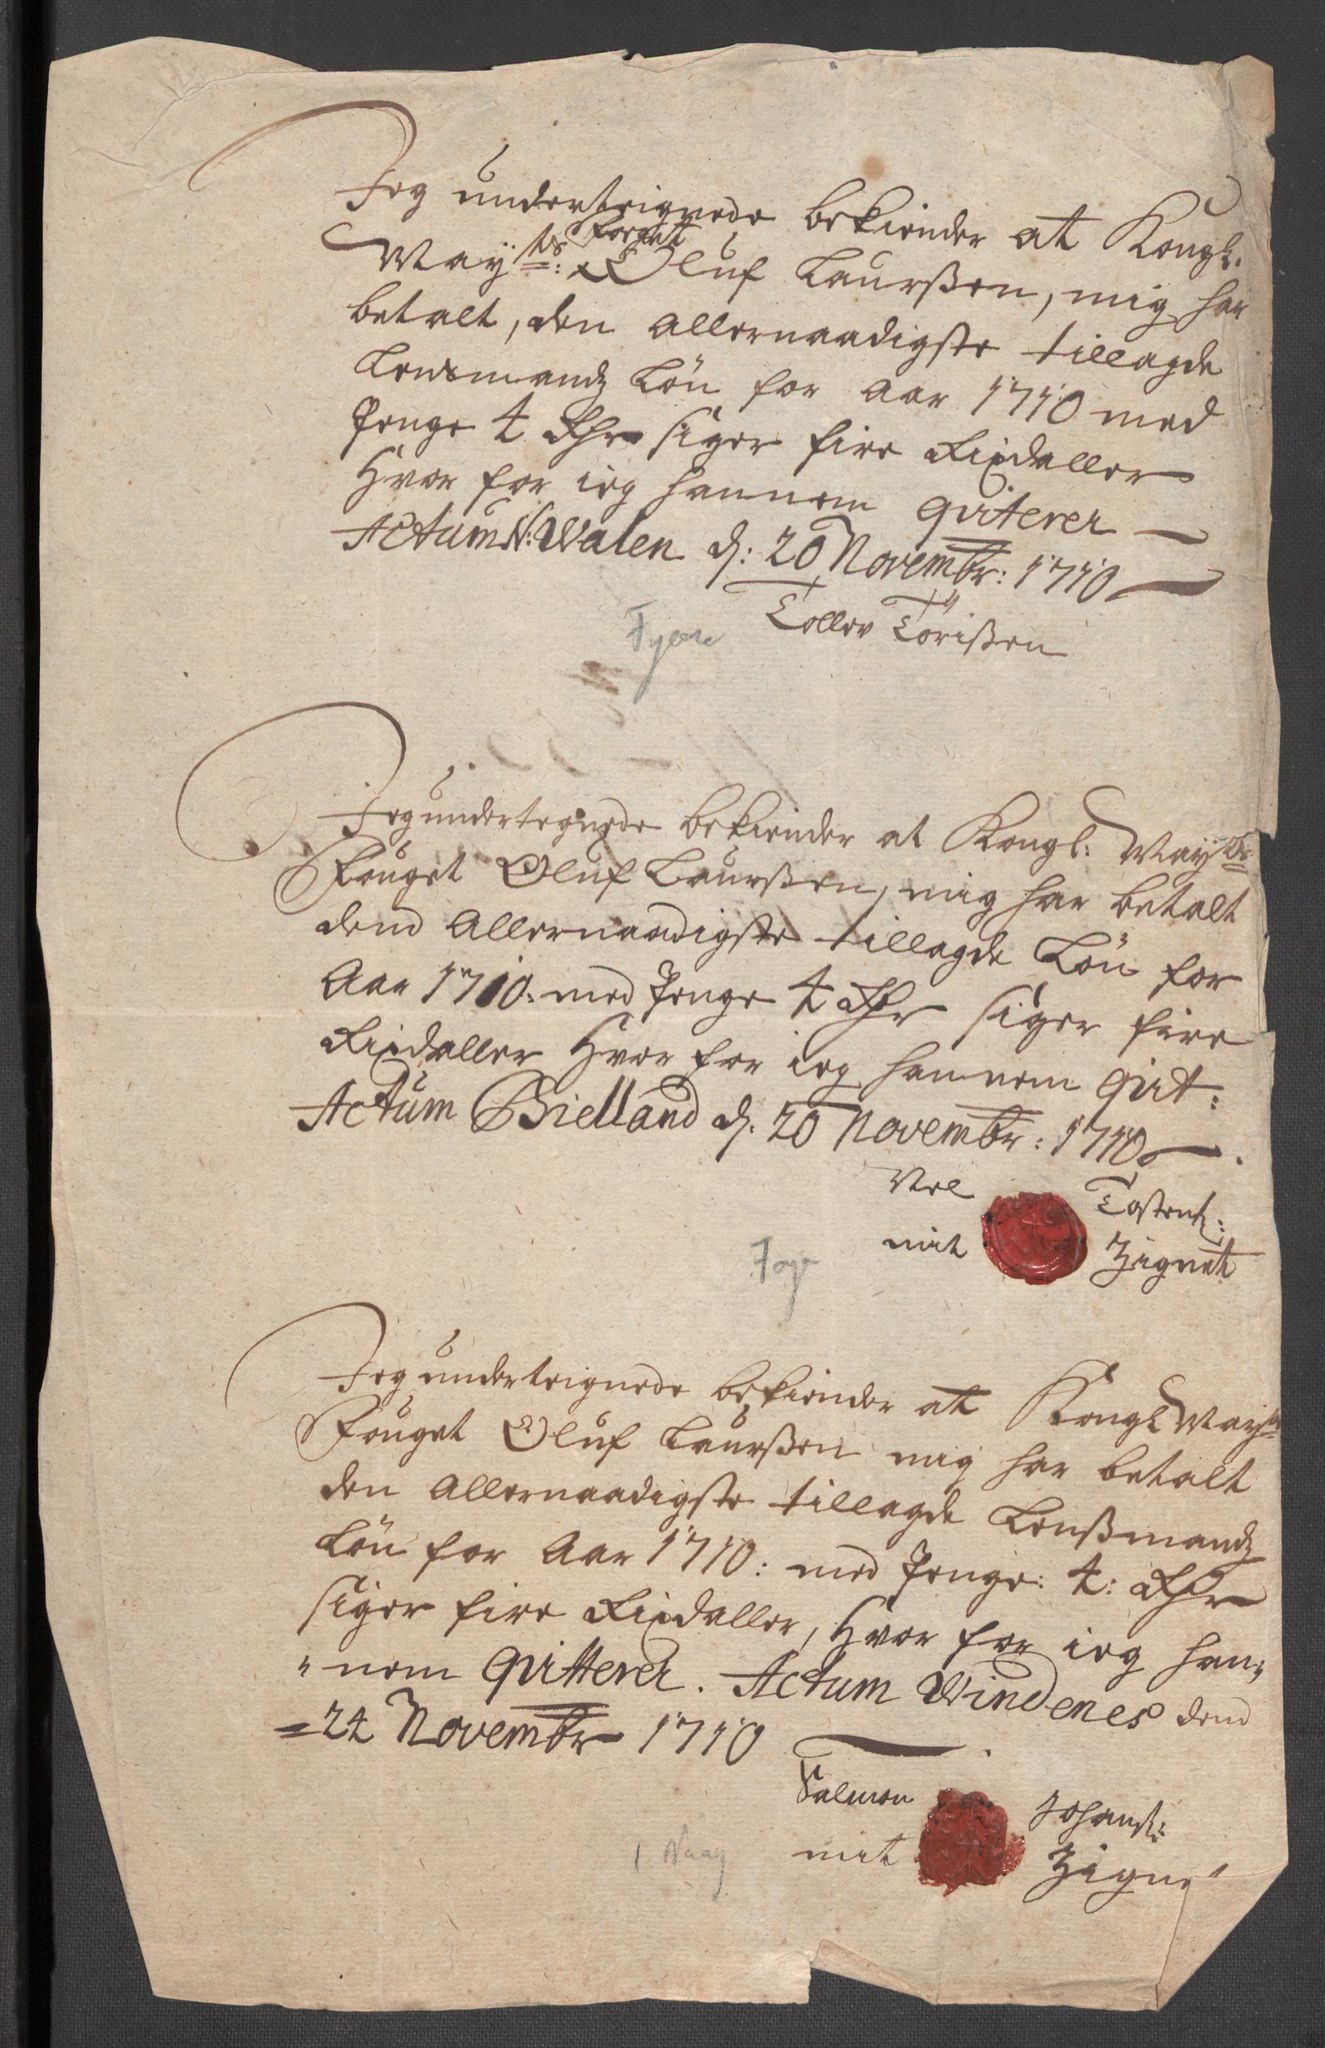 Jeg underteignede bekiender at Kongl.
May:ts Foeget Oluf Laurßen, mig har
betalt, den Allernaadigste tillagde
Lensmandz Lön for Aar 1710 med
Penge 4 Rdr siger fire Rixdaller
Hvor for ieg hannem qviterer
Actum N: Walen d: 20 Novembr: 1710
Tollev Törißen
Jeg undertegnede bekiender at Kongl: May:ts
Fouget Oluf Laurßen, mig har betalt
dend Allernaadigste tillagde Lön for
Aar 1710: med Penge 4 Rdr siger fire
Rixdaller Hvor for ieg hannem qvit:
Actum Bielland d. 20 Novembr: 1710
Nel Tostens:
mit Zignet
Jeg underteignede bekiender at Kongl May:ts
Fouget Oluf Laurßen mig har betalt
den Allernaadigste tillagde Lenßmandz
Lön for Aar 1710: med Penge: 4: Rdr
siger fire Rixdaller, Hvor for ieg han¬
nem qvitterer. Actum Windenes dend
24 Novembr 1710
Salmon Johanß:
mit Zignet